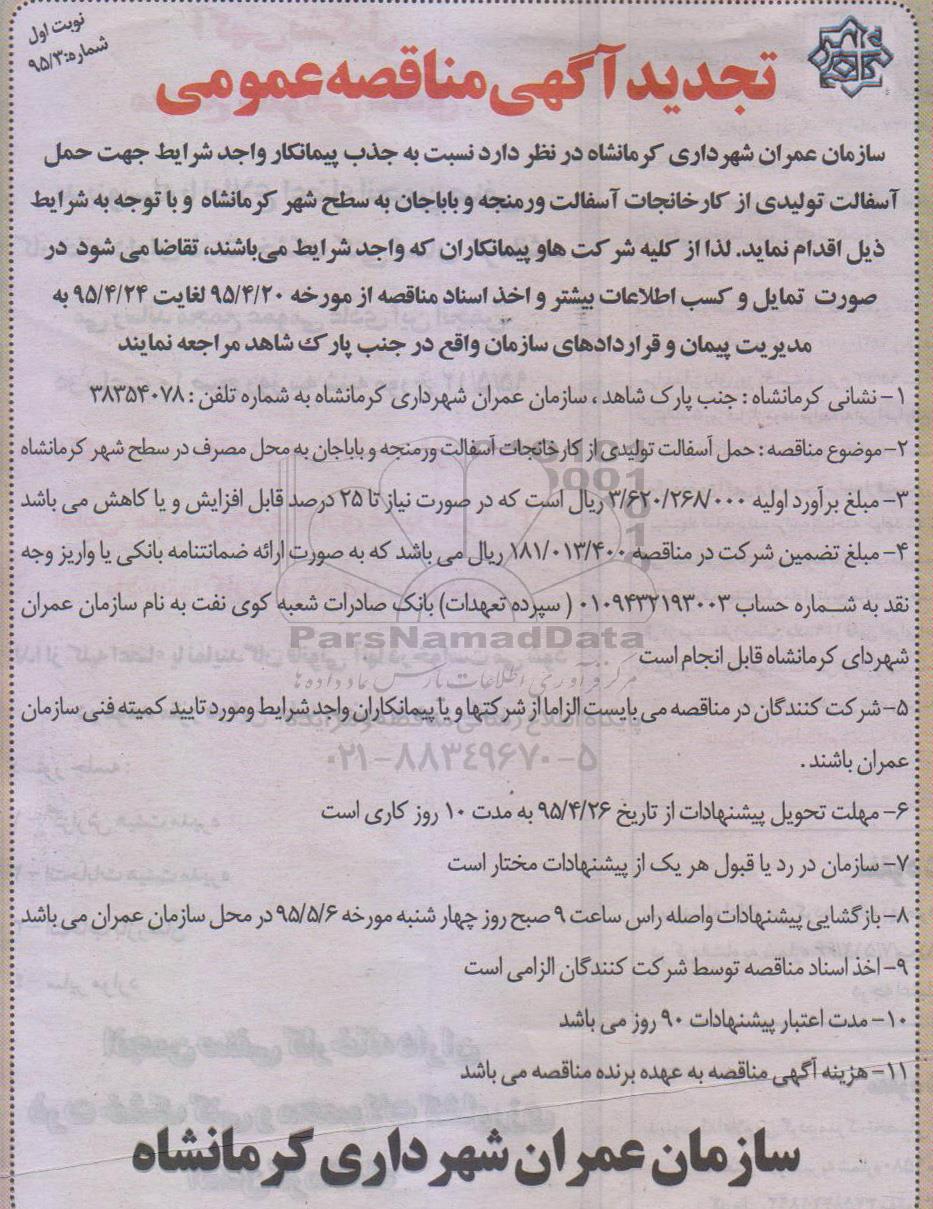 نوبت اول
شماره: ۹۵/۳
تجدید آگهی مناقصه عمومی
سازمان عمران شهرداری کرمانشاه در نظر دارد نسبت به جذب پیمانکار واجد شرایط جهت حمل
آسفالت تولیدی از کارخانجات آسفالت ورمنجه و باباجان به سطح شهر کرمانشاه و با توجه به شرایط
ذیل اقدام نماید. لذا از کلیه شرکت هاو پیمانکاران که واجد شرایط می‌باشند، تقاضا می شود در
صورت تمایل و کسب اطلاعات بیشتر و اخذ اسناد مناقصه از مورخه ۹۵/۴/۲۰ لغایت ۹۵/۴/۲۴ به
مدیریت پیمان و قراردادهای سازمان واقع در جنب پارک شاهد مراجعه نمایند
۱- نشانی کرمانشاه : جنب پارک شاهد ، سازمان عمران شهرداری کرمانشاه به شماره تلفن : ۳۸۳۵۴۰۷۸
۲- موضوع مناقصه : حمل آسفالت تولیدی از کارخانجات آسفالت ورمنجه و باباجان به محل مصرف در سطح شهر کرمانشاه
۳- مبلغ برآورد اولیه ۳/۶۲۰/۲۶۸/۰۰۰ ریال است که در صورت نیاز تا ۲۵ درصد قابل افزایش و یا کاهش می باشد
۴- مبلغ تضمین شرکت در مناقصه ۱۸۱/۰۱۳/۴۰۰ ریال می باشد که به صورت ارائه ضمانتنامه بانکی یا واریز وجه
نقد به شماره حساب ۰۱۰۹۴۳۲۱۹۳۰۰۳ ( سپرده تعهدات) بانک صادرات شعبه کوی نفت به نام سازمان عمران
شهردای کرمانشاه قابل انجام است
ParsNamadData
مرکز فرآوری اطلاعات پارس نماد داده ها
۵- شرکت کنندگان در مناقصه می بایست الزاما از شرکتها و یا پیمانکاران واجد شرایط ومورد تایید کمیته فنی سازمان
عمران باشند .
۰۲۱-۸۸۳۴۹۶۷۰-۵
۶- مهلت تحویل پیشنهادات از تاریخ ۹۵/۴/۲۶ به مدت ۱۰ روز کاری است
۷- سازمان در رد یا قبول هر یک از پیشنهادات مختار است
۸- بازگشایی پیشنهادات واصله راس ساعت ۹ صبح روز چهار شنبه مورخه ۹۵/۵/۶ در محل سازمان عمران می باشد
۹- اخذ اسناد مناقصه توسط شرکت کنندگان الزامی است
۱۰- مدت اعتبار پیشنهادات ۹۰ روز می باشد
۱۱- هزینه آگهی مناقصه به عهده برنده مناقصه می باشد
سازمان عمران شهرداری کرمانشاه